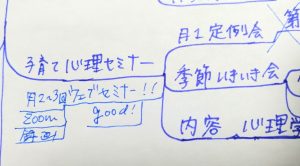 月1定例会
子育て心理セミナー
季節いきいき会
月2〜3回ウェブセミナー!!
good!
zoom
録画
内容 心理学